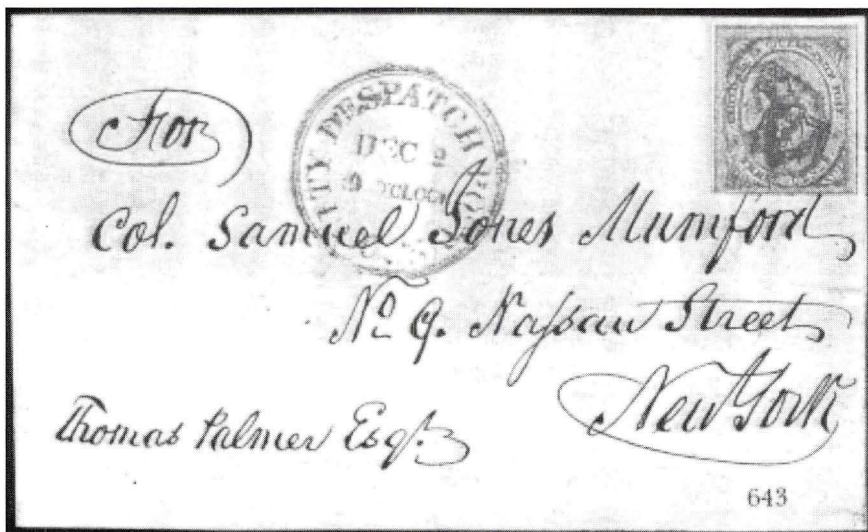 For
CITY DESPATCH PO
DEC 2
9 O'CLOCK
Col. Samuel Jones Mumford
No 9. Naſsau Street
New York
Thomas Palmer Esqr.
643